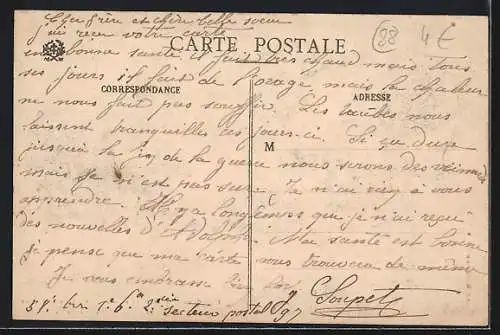 Cher frère et chère belle soeur
j'ai reçu votre carte
en bonne santé, il fait très chaud mais tous
ses jours il fait de l'orage, mais la chaleur
ne nous fait pas souffrir. Les boches nous
laissent tranquilles ces jours-ci. Si ça dure
jusqu'à la fin de la guerre nous serons des veinards
mais je n'est pas sure. Je n'ai rien à vous
apprendre. Il y a longtemps que je n'ai reçu
des nouvelles d'Adolphe. Ma santé est bonne
je pense que ma carte vous trouvera de même
Je vous embrasse bien fort
Soupet
secteur postal 97
CARTE POSTALE
CORRESPONDANCE
ADRESSE
M
88
4€